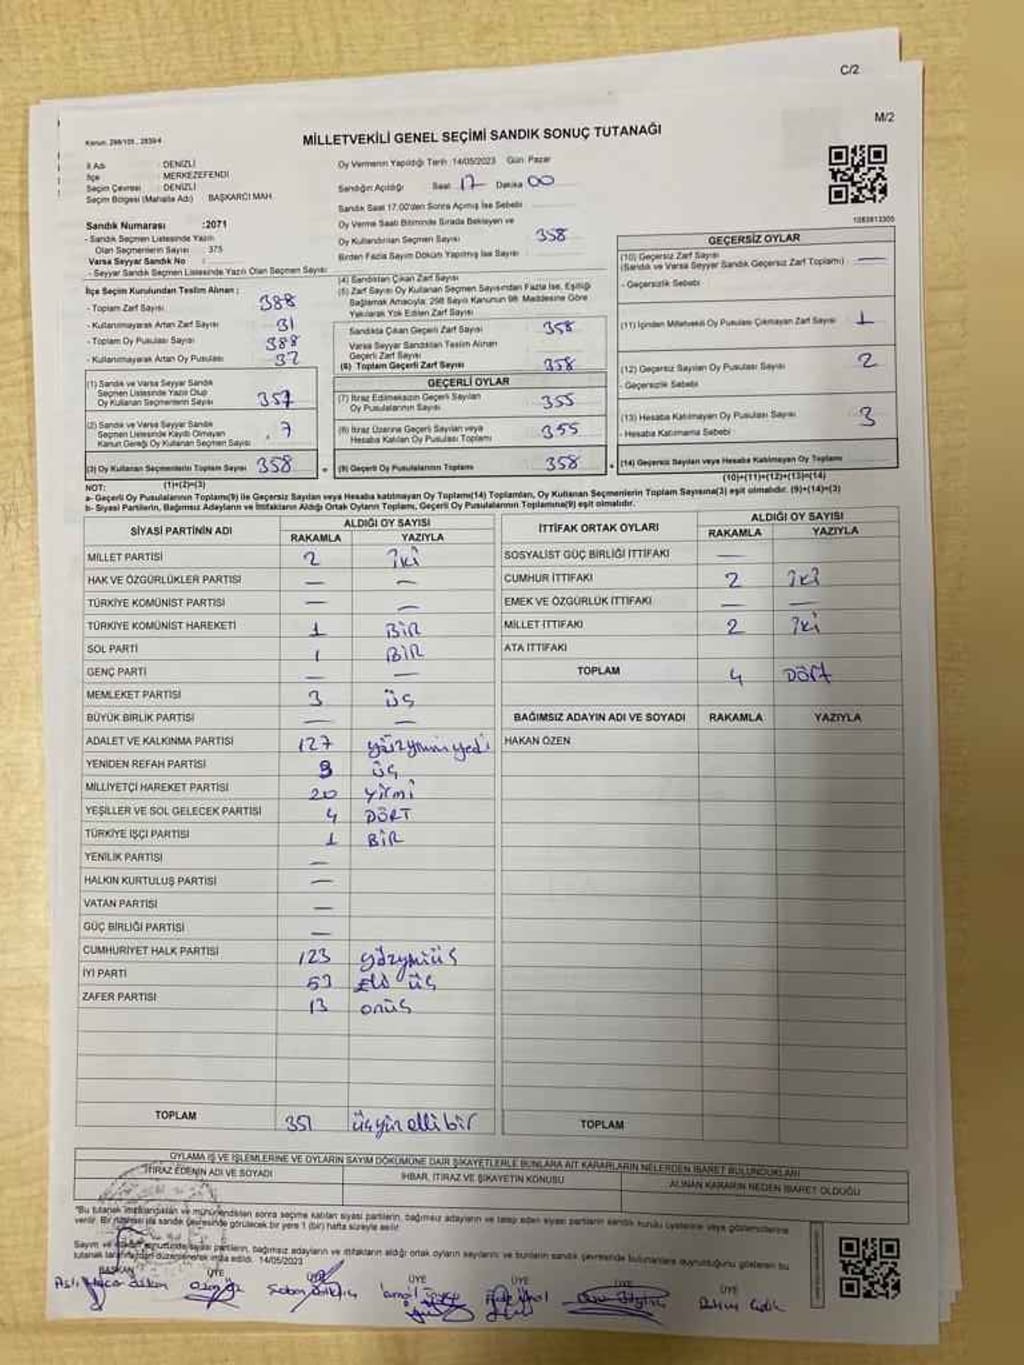 C/2
M/2
Kanun: 298/105, 2839/4
MİLLETVEKİLİ GENEL SEÇİMİ SANDIK SONUÇ TUTANAĞI
İl Adı : DENİZLİ
İlçe : MERKEZEFENDİ
Seçim Çevresi : DENİZLİ
Seçim Bölgesi (Mahalle Adı) : BAŞKARCI MAH
Oy Vermenin Yapıldığı Tarih :14/05/2023 Gün: Pazar
Sandığın Açıldığı Saat 17 Dakika 00
Sandık Saat 17.00'den Sonra Açılmış İse Sebebi
Sandık Numarası :2071
- Sandık Seçmen Listesinde Yazılı
Olan Seçmenlerin Sayısı : 375
Varsa Seyyar Sandık No :
- Seyyar Sandık Seçmen Listesinde Yazılı Olan Seçmen Sayısı
Oy Verme Saati Bitiminde Sırada Bekleyen ve
Oy Kullandırılan Seçmen Sayısı 358
Birden Fazla Sayım Döküm Yapılmış İse Sayısı
1083813305
İlçe Seçim Kurulundan Teslim Alınan ;
- Toplam Zarf Sayısı 388
- Kullanılmayarak Artan Zarf Sayısı 31
- Toplam Oy Pusulası Sayısı 388
- Kullanılmayarak Artan Oy Pusulası 32
(1) Sandık ve Varsa Seyyar Sandık
Seçmen Listesinde Yazılı Olup
Oy Kullanan Seçmenlerin Sayısı 357
(2) Sandık ve Varsa Seyyar Sandık
Seçmen Listesinde Kaydı Olmayan
Kanun Gereği Oy Kullanan Seçmen Sayısı 7
(3) Oy Kullanan Seçmenlerin Toplam Sayısı 358
(1)+(2)=(3)
(4) Sandıktan Çıkan Zarf Sayısı
(5) Zarf Sayısı Oy Kullanan Seçmen Sayısından Fazla İse, Eşitliği
Sağlamak Amacıyla; 298 Sayılı Kanunun 98. Maddesine Göre
Yakılarak Yok Edilen Zarf Sayısı
Sandıkta Çıkan Geçerli Zarf Sayısı 358
Varsa Seyyar Sandıktan Teslim Alınan
Geçerli Zarf Sayısı
(6) Toplam Geçerli Zarf Sayısı 358
GEÇERLİ OYLAR
(7) İtiraz Edilmeksizin Geçerli Sayılan
Oy Pusulalarının Sayısı 355
(8) İtiraz Üzerine Geçerli Sayılan veya
Hesaba Katılan Oy Pusulası Toplamı 355
(9) Geçerli Oy Pusulalarının Toplamı 358
GEÇERSİZ OYLAR
(10) Geçersiz Zarf Sayısı
(Sandık ve Varsa Seyyar Sandık Geçersiz Zarf Toplamı) —
- Geçersizlik Sebebi
(11) İçinden Milletvekili Oy Pusulası Çıkmayan Zarf Sayısı 1
(12) Geçersiz Sayılan Oy Pusulası Sayısı 2
- Geçersizlik Sebebi
(13) Hesaba Katılmayan Oy Pusulası Sayısı 3
- Hesaba Katılmama Sebebi
(14) Geçersiz Sayılan veya Hesaba Katılmayan Oy Toplamı
(10)+(11)+(12)+(13)=(14)
NOT:
a- Geçerli Oy Pusulalarının Toplamı(9) ile Geçersiz Sayılan veya Hesaba katılmayan Oy Toplamı(14) Toplamları, Oy Kullanan Seçmenlerin Toplam Sayısına(3) eşit olmalıdır. (9)+(14)=(3)
b- Siyasi Partilerin, Bağımsız Adayların ve İttifakların Aldığı Ortak Oyların Toplamı, Geçerli Oy Pusulalarının Toplamına(9) eşit olmalıdır.
SİYASİ PARTİNİN ADI ALDIĞI OY SAYISI
RAKAMLA YAZIYLA
MİLLET PARTİSİ 2 iki
HAK VE ÖZGÜRLÜKLER PARTİSİ — —
TÜRKİYE KOMÜNİST PARTİSİ — —
TÜRKİYE KOMÜNİST HAREKETİ 1 BİR
SOL PARTİ 1 BİR
GENÇ PARTİ — —
MEMLEKET PARTİSİ 3 üç
BÜYÜK BİRLİK PARTİSİ — —
ADALET VE KALKINMA PARTİSİ 127 yüzyirmiyedi
YENİDEN REFAH PARTİSİ 3 üç
MİLLİYETÇİ HAREKET PARTİSİ 20 yirmi
YEŞİLLER VE SOL GELECEK PARTİSİ 4 DÖRT
TÜRKİYE İŞÇİ PARTİSİ 1 BİR
YENİLİK PARTİSİ —
HALKIN KURTULUŞ PARTİSİ —
VATAN PARTİSİ —
GÜÇ BİRLİĞİ PARTİSİ —
CUMHURİYET HALK PARTİSİ 123 yüzyirmiüç
İYİ PARTİ 53 elli üç
ZAFER PARTİSİ 13 onüç
TOPLAM 351 üçyüzellibir
İTTİFAK ORTAK OYLARI ALDIĞI OY SAYISI
RAKAMLA YAZIYLA
SOSYALİST GÜÇ BİRLİĞİ İTTİFAKI —
CUMHUR İTTİFAKI 2 iki
EMEK VE ÖZGÜRLÜK İTTİFAKI — —
MİLLET İTTİFAKI 2 iki
ATA İTTİFAKI
TOPLAM 4 DÖRT
BAĞIMSIZ ADAYIN ADI VE SOYADI RAKAMLA YAZIYLA
HAKAN ÖZEN
TOPLAM
OYLAMA İŞ VE İŞLEMLERİNE VE OYLARIN SAYIM DÖKÜMÜNE DAİR ŞİKAYETLERLE BUNLARA AİT KARARLARIN NELERDEN İBARET BULUNDUKLARI
İTİRAZ EDENİN ADI VE SOYADI İHBAR, İTİRAZ VE ŞİKAYETİN KONUSU ALINAN KARARIN NEDEN İBARET OLDUĞU
"Bu tutanak imzalandıktan ve mühürlendikten sonra seçime katılan siyasi partilerin, bağımsız adayların ve talep eden siyasi partilerin sandık kurulu üyelerine veya gözlemcilerine
verilir. Bir nüshası da sandık çevresinde görülecek bir yere 1 (bir) hafta süreyle asılır.
siyasi partilerin, bağımsız adayların ve ittifakların aldığı ortak oyların sayılarını ve bunların sandık çevresinde bulunanlara duyurulduğunu gösteren bu
düzenlenerek imza edildi. 14/05/2023
BAŞKAN ÜYE ÜYE ÜYE ÜYE ÜYE ÜYE